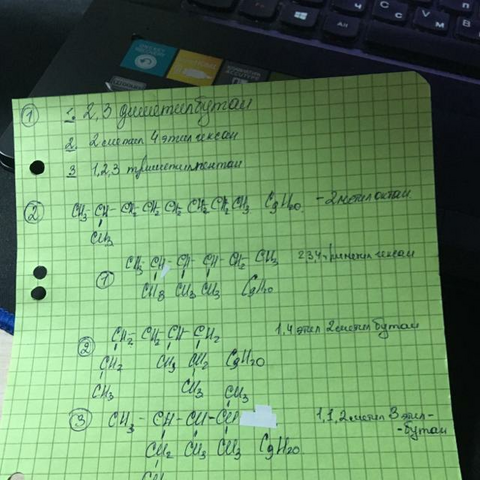 ① 1. 2,3 диметилбутан
2. 2 метил 4 этилгексан
3. 1,2,3 триметилпентан
② CH3 - CH - CH2 - CH2 - CH2 - CH2 - CH2 - CH3 C9H20 - 2 метилоктан
CH3
① CH3 - CH - CH - CH - CH2 - CH3 2,3,4 триметилгексан
CH3 CH3 CH3 C9H20
② CH2 - CH2 - CH - CH2 1,4 этил 2 метилбутан
CH2 CH3 CH2 C9H20
CH3 CH3
CH3
③ CH3 - CH - CH - CH 1,1,2 метил 3 этил-
CH2 CH3 CH3 C9H20 -бутан